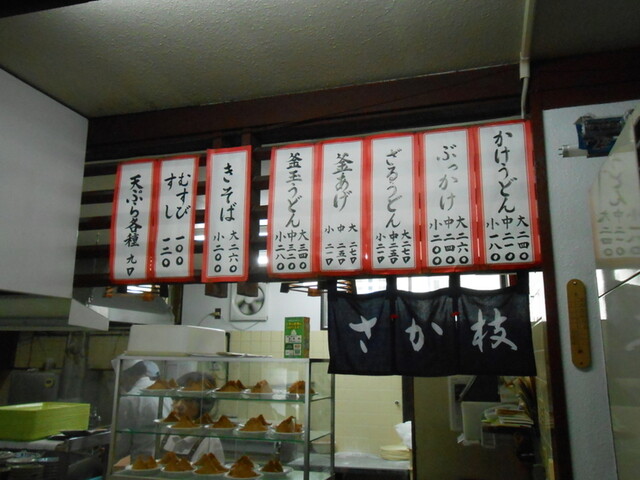 かけうどん
大 二四〇
中 二一〇
小 一八〇
ぶっかけ
大 二六〇
中 二四〇
小 二〇〇
ざるうどん
大
中 二五〇
小
釜あげ
大
中 二五〇
小
釜玉うどん
大 三四〇
中
小 二八〇
きそば
大 二六〇
小 二〇〇
むすび 一〇〇
すし 一二〇
天ぷら各種 九〇
さか枝